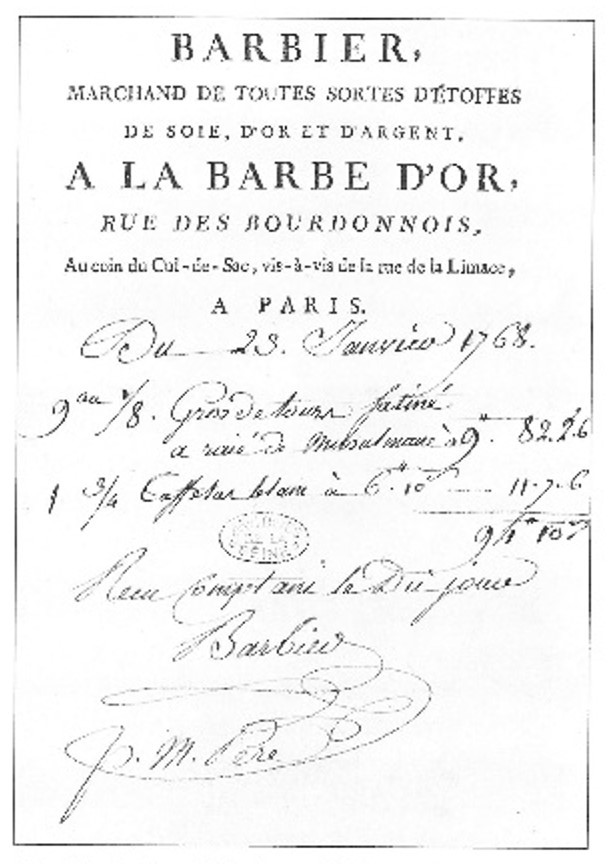 BARBIER,
MARCHAND DE TOUTES SORTES D'ÉTOFFES
DE SOIE, D'OR ET D'ARGENT,
A LA BARBE D'OR,
RUE DES BOURDONNOIS,
Au coin du Cul-de-Sac, vis-à-vis de la rue de la Limace,
A PARIS.
Du 23. Janvier 1768.
9 au 1/8. Gros de tours satiné
a raié de Musulmane à 9#. 82.2.6
1 3/4 Taffetas blanc à 6#.10s 11.7.6
DE LA
SEINE
Reçu Comptant le Dit jour
Barbier
p. M. Père